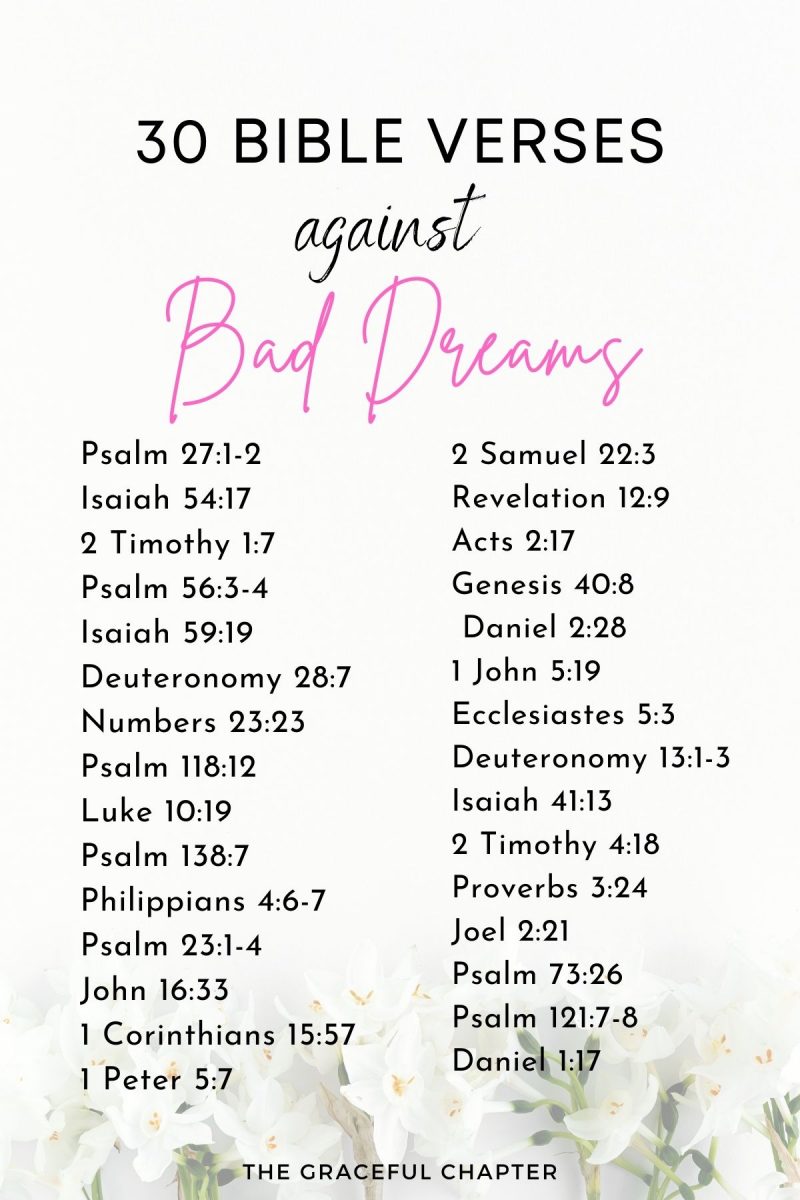 30 BIBLE VERSES
against
Bad Dreams
Psalm 27:1-2
Isaiah 54:17
2 Timothy 1:7
Psalm 56:3-4
Isaiah 59:19
Deuteronomy 28:7
Numbers 23:23
Psalm 118:12
Luke 10:19
Psalm 138:7
Philippians 4:6-7
Psalm 23:1-4
John 16:33
1 Corinthians 15:57
1 Peter 5:7
2 Samuel 22:3
Revelation 12:9
Acts 2:17
Genesis 40:8
Daniel 2:28
1 John 5:19
Ecclesiastes 5:3
Deuteronomy 13:1-3
Isaiah 41:13
2 Timothy 4:18
Proverbs 3:24
Joel 2:21
Psalm 73:26
Psalm 121:7-8
Daniel 1:17
THE GRACEFUL CHAPTER